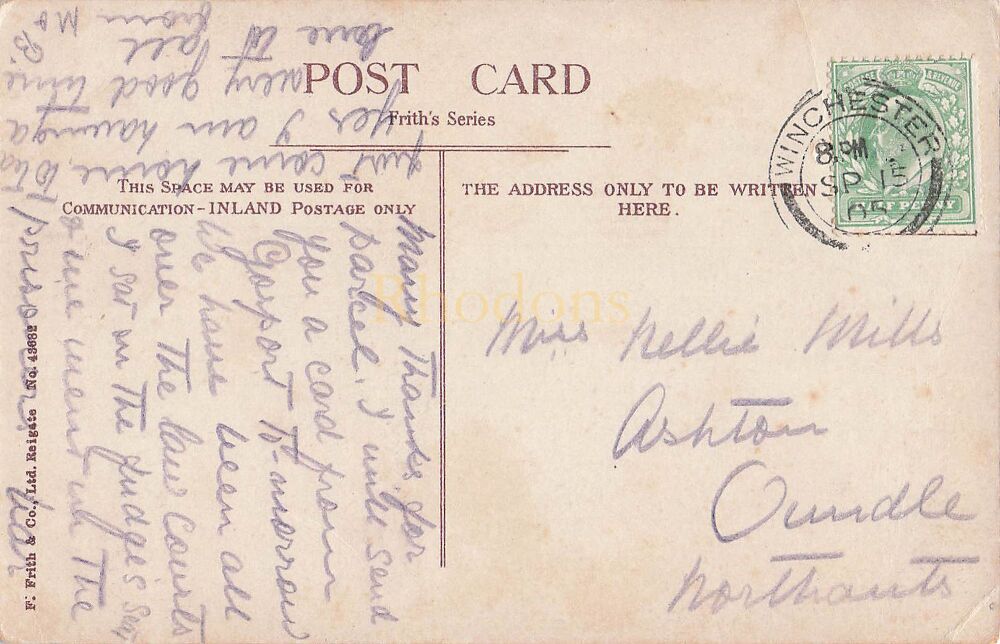 POST CARD
Frith's Series
THIS SPACE MAY BE USED FOR
COMMUNICATION-INLAND POSTAGE ONLY
THE ADDRESS ONLY TO BE WRITTEN
HERE.
WINCHESTER
8. PM
SP 15
05
HALF PENNY
Miss Nellie Mills
Ashton
Oundle
Northants
Many Thanks for
parcel. I will send
you a card from
Gosport To-morrow
We have been all
over The Law Courts
I sat in The Judge's
one went in The
prisoners
just come home
yes I am having a
very good time
love to all from
M & B.
F. Frith & Co., Ltd. Reigate No. 43682
Rhodons